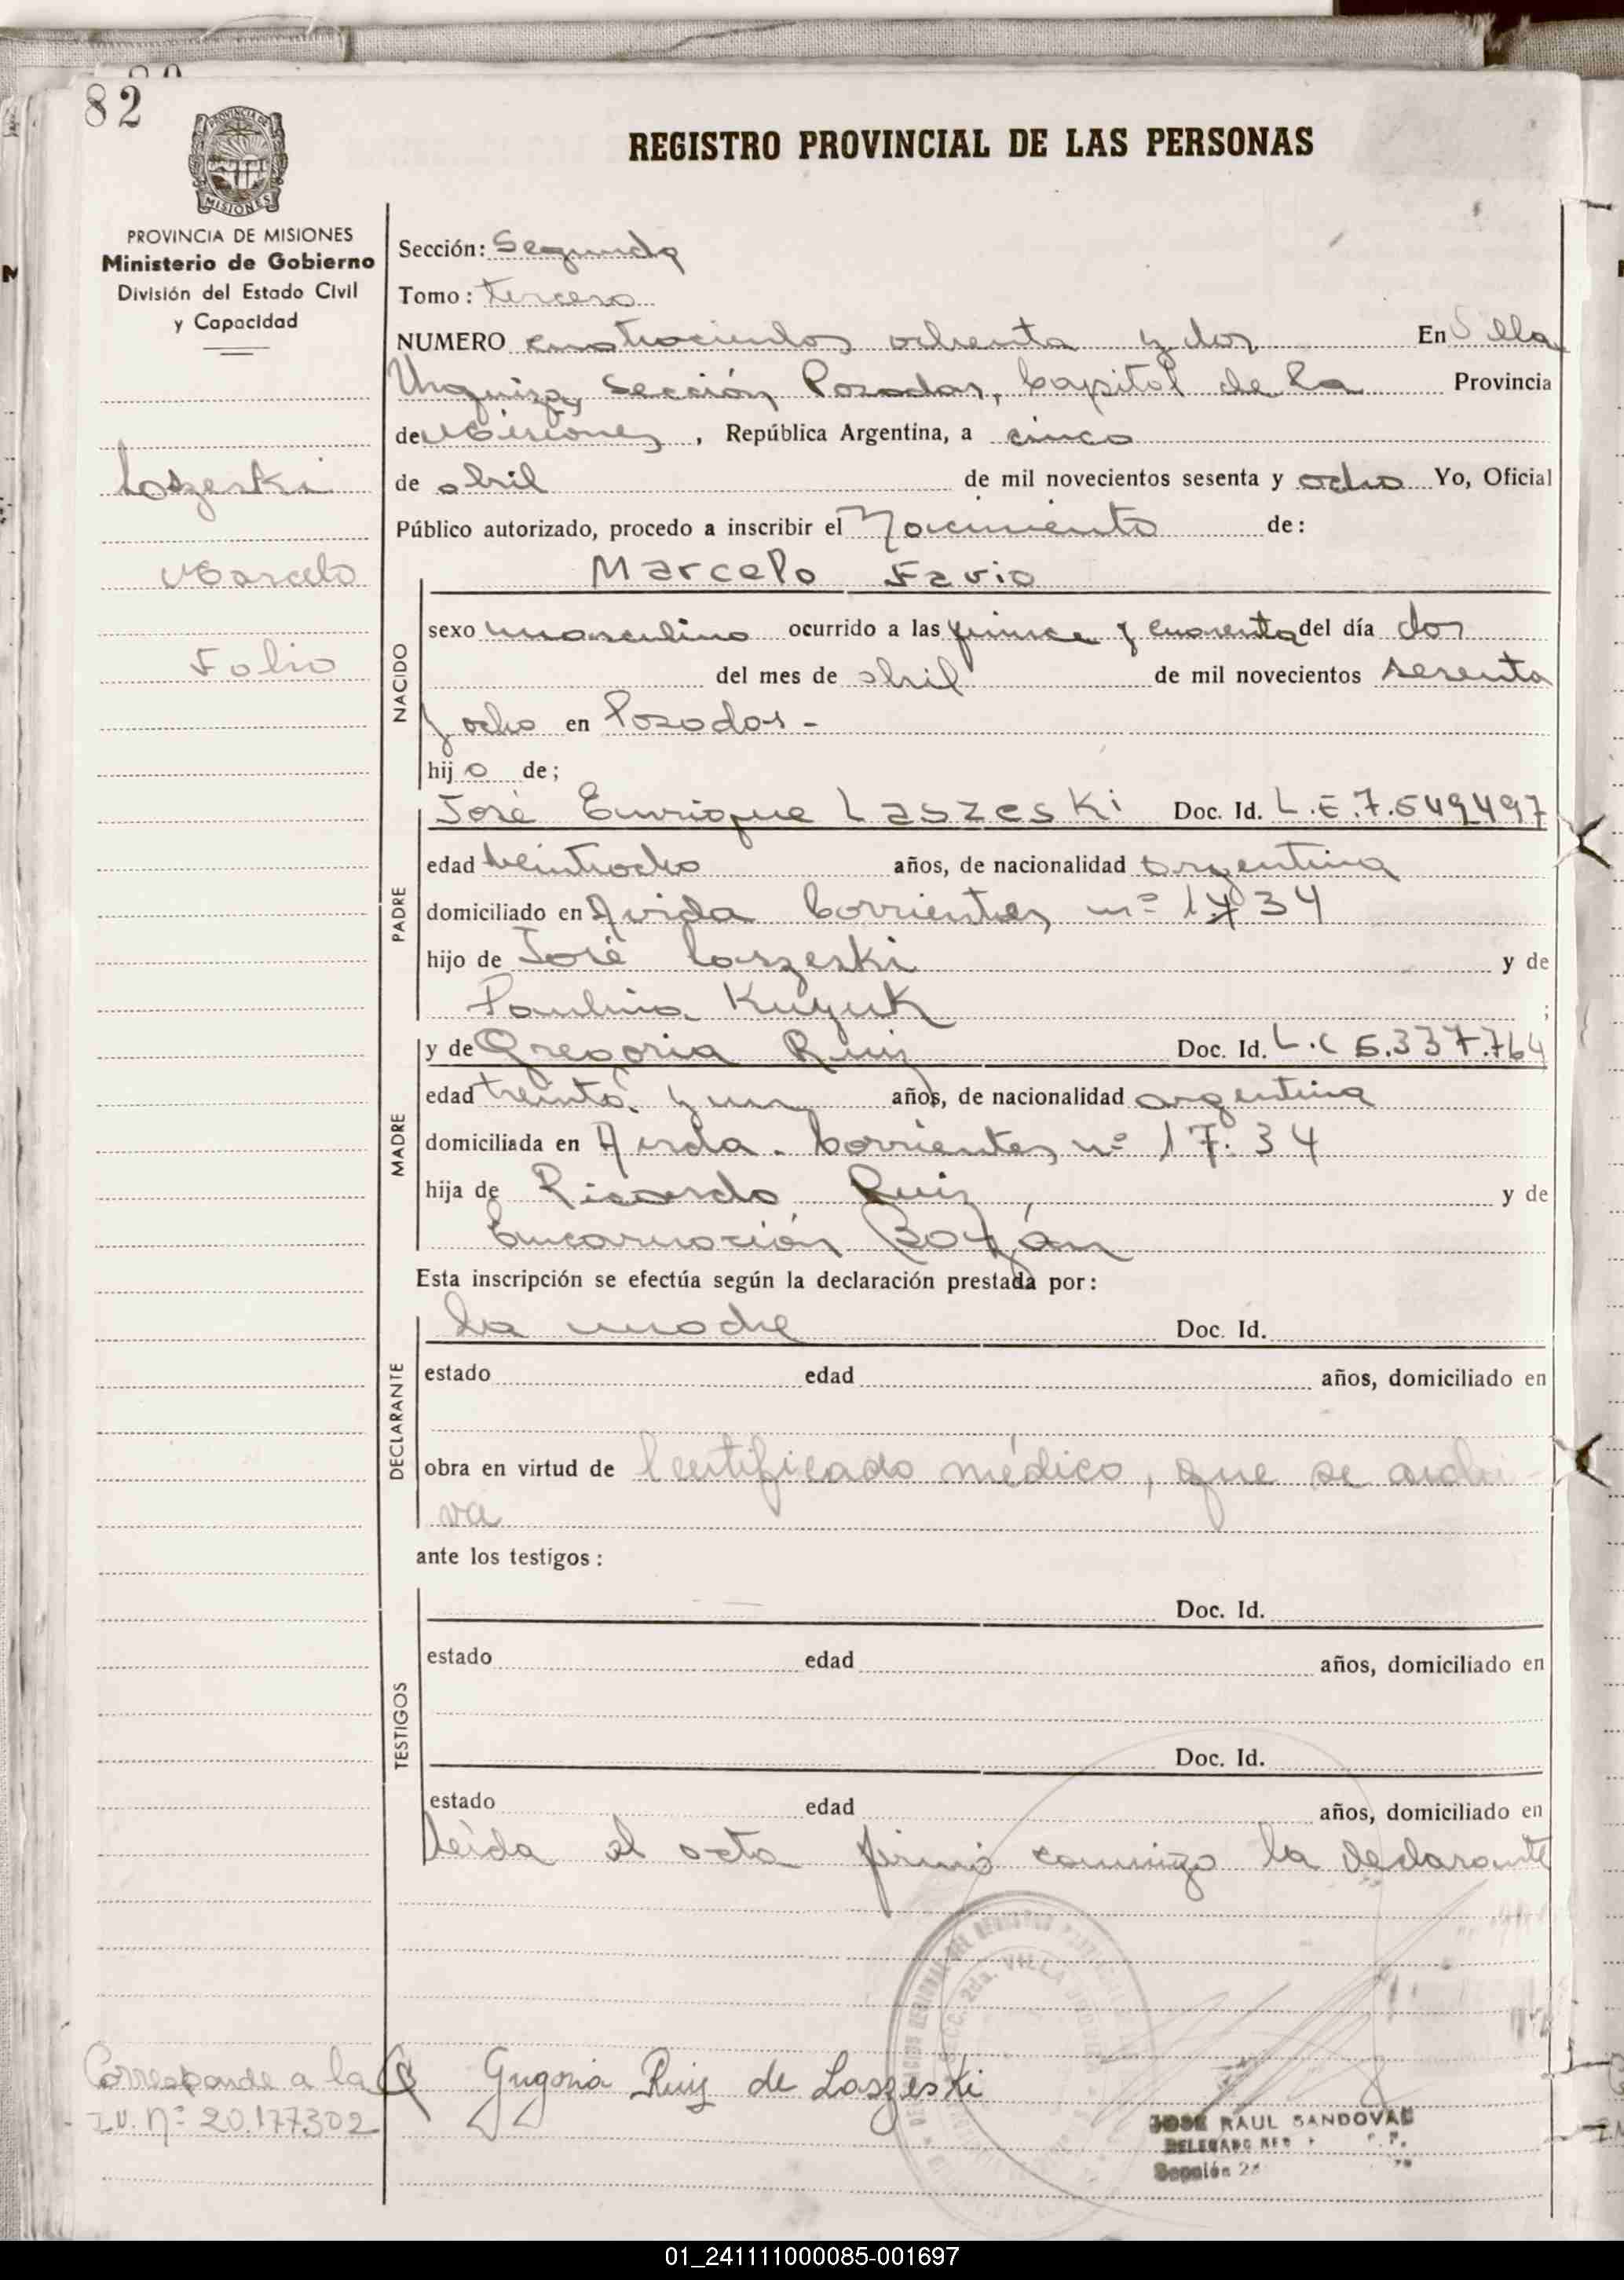 82
PROVINCIA DE MISIONES
MISIONES
PROVINCIA DE MISIONES
Ministerio de Gobierno
División del Estado Civil
y Capacidad
Laszeski
Marcelo
Fabio
REGISTRO PROVINCIAL DE LAS PERSONAS
Sección: Segunda
Tomo: tercero
NUMERO cuatrocientos ochenta y dos En Villa
Urquiza, Sección Posadas, Capital de la Provincia
de Misiones, República Argentina, a cinco
de abril de mil novecientos sesenta y ocho Yo, Oficial
Público autorizado, procedo a inscribir el Nacimiento de:
Marcelo Favio
NACIDO
sexo masculino ocurrido a las quince y cuarenta del día dos
del mes de abril de mil novecientos sesenta
y ocho en Posadas -
hijo de;
PADRE
José Enrique Laszeski Doc. Id. L.E.7.549497
edad veintiocho años, de nacionalidad argentina
domiciliado en Avida Corrientes nº 1734
hijo de José Laszeski y de
Paulina Kuyuk ;
MADRE
y de Gregoria Ruiz Doc. Id. L.C 5.337.764
edad treinta y un años, de nacionalidad argentina
domiciliada en Avda. Corrientes nº 17.34
hija de Ricardo Ruiz y de
Encarnación
Esta inscripción se efectúa según la declaración prestada por:
DECLARANTE
la madre Doc. Id.
estado edad años, domiciliado en
obra en virtud de Certificado médico, que se archi
va
ante los testigos:
TESTIGOS
Doc. Id.
estado edad años, domiciliado en
Doc. Id.
estado edad años, domiciliado en
Leída el acta firmó conmigo la declarante
2da. VILLA
Gregoria Ruiz de Laszeski
Corresponde a la
nº 20.177302
JOSE RAUL SANDOVAL
DELEGADO
Sección 2ª
01_241111000085-001697